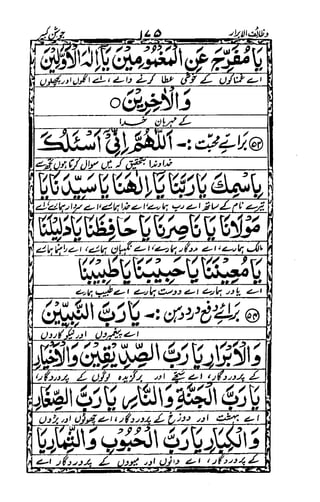 وظائف الابرار ١٧٥ جوشن کبیر
يَا مُفَرِّجَ عَنِ الْمَغْمُومِيْنَ يَا اِلٰهَ الْاَوَّلِيْنَ
اے غمناکوں کے خوشی عطا کرنے والے، اے اگلوں اور پچھلوں
وَالْاٰخِرِيْنَ ○
کے مہربان خدا
(۵۳) برائے محبت :- اَللّٰهُمَّ اِنِّيْ اَسْئَلُكَ
خداوندا بتحقیق کہ میں سوال کرتا ہوں تجھ سے
بِاسْمِكَ يَا رَبَّنَا يَا اِلٰهَنَا يَا سَيِّدَنَا يَا
تیرے نام کے ساتھ اے رب ہمارے اے خدا ہمارے اے سردار ہمارے اے
مَوْلَانَا يَا نَاصِرَنَا يَا حَافِظَنَا يَا دَلِيْلَنَا
مالک ہمارے، اے مددگار ہمارے، اے نگہبان ہمارے، اے راہنما ہمارے
يَا مُعِيْنَنَا يَا حَبِيْبَنَا يَا طَبِيْبَنَا
اے یاور ہمارے اے دوست ہمارے اے طبیب ہمارے
(۵۴) برائے دفع درد دہن :- يَا رَبَّ النَّبِيِّيْنَ
اے پیغمبروں اور نیکوکاروں
وَالْاَبْرَارِ يَا رَبَّ الصِّدِّيْقِيْنَ وَالْاَخْيَارِ
کے پروردگار، اے سچے اور برگزیدہ لوگوں کے پروردگار،
يَا رَبَّ الْجَنَّةِ وَالنَّارِ يَا رَبَّ الصِّغَارِ
اے بہشت اور دوزخ کے پروردگار، اے چھوٹوں اور بڑوں
وَالْكِبَارِ يَا رَبَّ الْحُبُوْبِ وَالثِّمَارِ يَا
کے پروردگار، اے دانوں اور میووں کے پروردگار اے